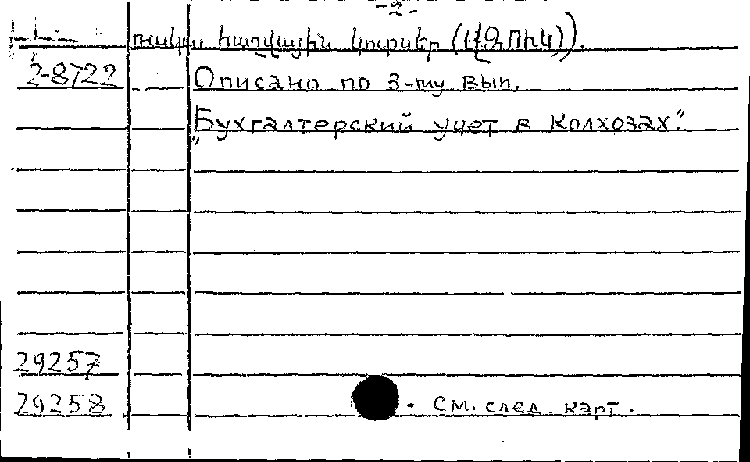 -2-
հաշվային կուրսեր (ՎՋՈՒԿ)).
2-8722 Описано по 3-му вып.
„Бухгалтерский учет в Колхозах".
29257
29258 . См. след. карт.